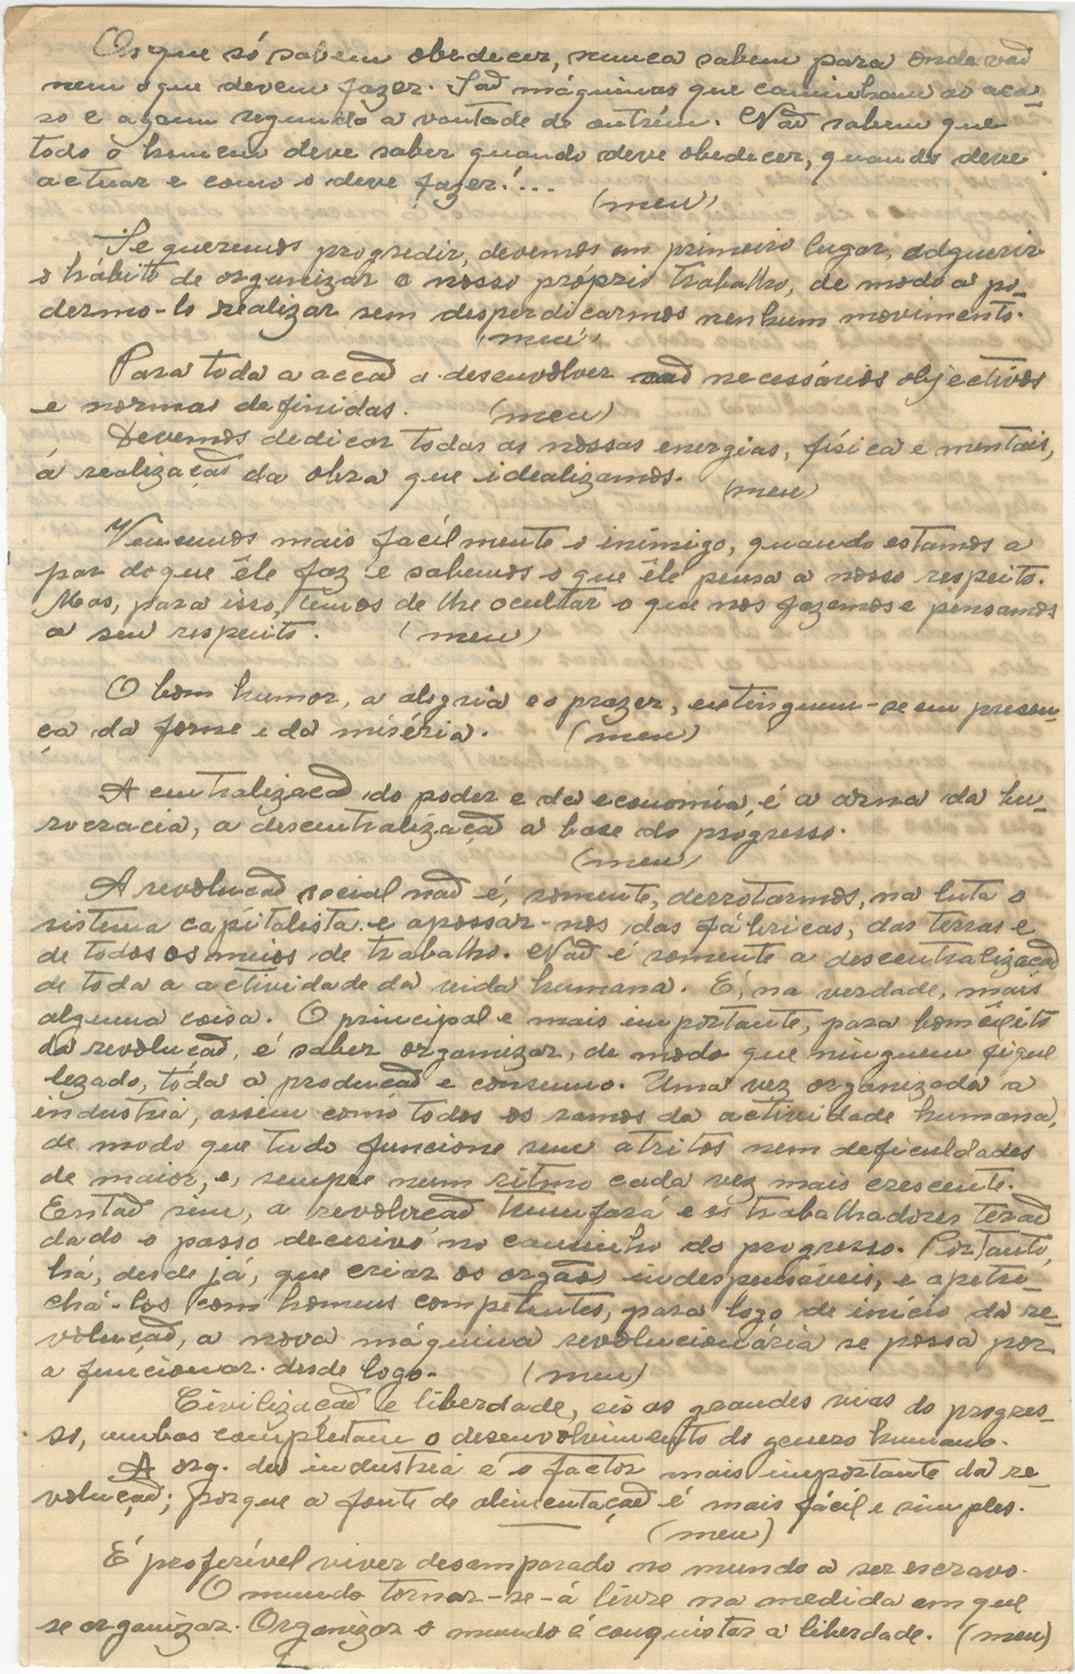 Os que só sabem obedecer, nunca sabem para onde vaõ
nem o que devem fazer. Saõ máquinas que caminham ao aca-
so e agem segundo a vontade de outrém. Naõ sabem que
todo o homem deve saber quando deve obedecer, quando deve
actuar e como o deve fazer!...
(meu)
Se queremos progredir, devemos em primeiro lugar, adquerir
o hábito de organizar o nosso próprio trabalho, de modo a po-
dermo-lo realizar sem desperdicarmos nenhum movimento.
(meu)
Para toda a accaõ a desenvolver saõ necessários objectivos
e normas definidas. (meu)
Devemos dedicar todas as nossas energias, física e mentais,
á realizaçaõ da obra que idealizamos. (meu)
Vencemos mais facílmente o inimigo, quando estamos a
par do que êle faz e sabemos o que êle pensa a nosso respeito.
Mas, para isso, temos de lhe ocultar o que nos fazemos e pensamos
a seu respeito. (meu)
O bom humor, a alegria e o prazer, extinguem-se em presen-
ça da fome e da miséria. (meu)
A centralizacaõ do poder e da economia, é a arma da bu-
rocracia, a descentralizaçaõ a base do progresso.
(meu)
A revolucaõ social naõ é, somente, derrotarmos, na luta o
sistema capitalista e apossar-nos das fábricas, das terras e
de todos os meios de trabalho. Naõ é somente a descentralizaçaõ
de toda a actividade da vida humana. É, na verdade, mais
alguma coisa. O principal e mais importante, para bom éxito
da revolucaõ, é saber organizar, de modo que ninguem fique
lezado, tóda a produçaõ e consumo. Uma vez organizada a
industria, assim como todos os ramos da actividade humana,
de modo que tudo funcione sem atritos nem deficuldades
de maior, e, sempre num ritmo cada vez mais crescente.
Entaõ sim, a revolucaõ triunfará e os trabalhadores teraõ
dado o passo decesivo no caminho do progresso. Portanto,
há, desde já, que criar os orgãos indespensáveis, e apetre-
chá-los com homens competentes, para logo de início da re-
voluçaõ, a nova máquina revolucionária se possa por
a funcionar desde logo. (meu)
Civilizaçaõ e liberdade, eis as grandes vias do progres-
so, ambas completam o desenvolvimento do genero humano.
A org. da industria é o factor mais importante da re-
voluçaõ; porque a fonte de alimentaçaõ é mais fácil e simples.
(meu)
É preferível viver desamparado no mundo a ser escravo.
O mundo tornar-se-á livre na medida em que
se organizar. Organizar o mundo é conquistar a liberdade. (meu)